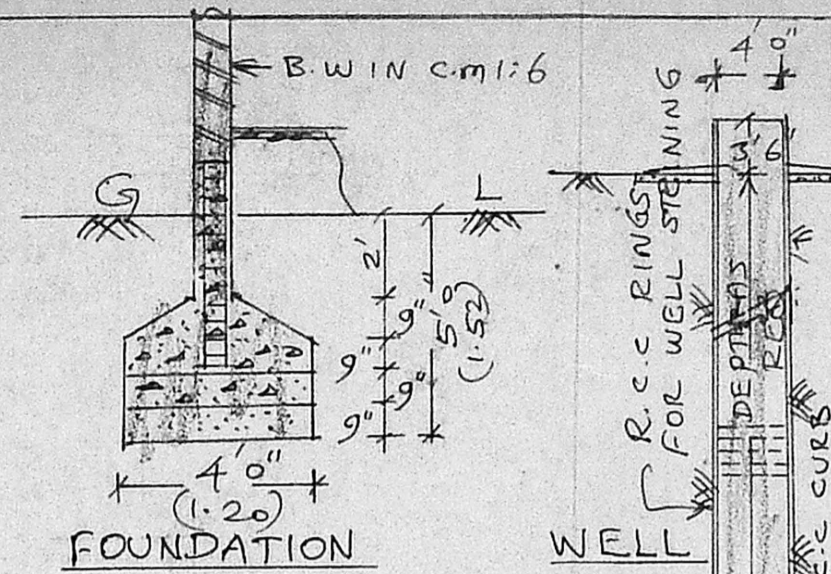 B.W IN C.m 1:6
G
L
2'
9"
9"
9"
9"
5'0"
(1.52)
4'0"
(1.20)
FOUNDATION
4'0"
3'6"
R.C.C RINGS
FOR WELL STEINING
DEPTH AS
REQ
C.C CURB
WELL